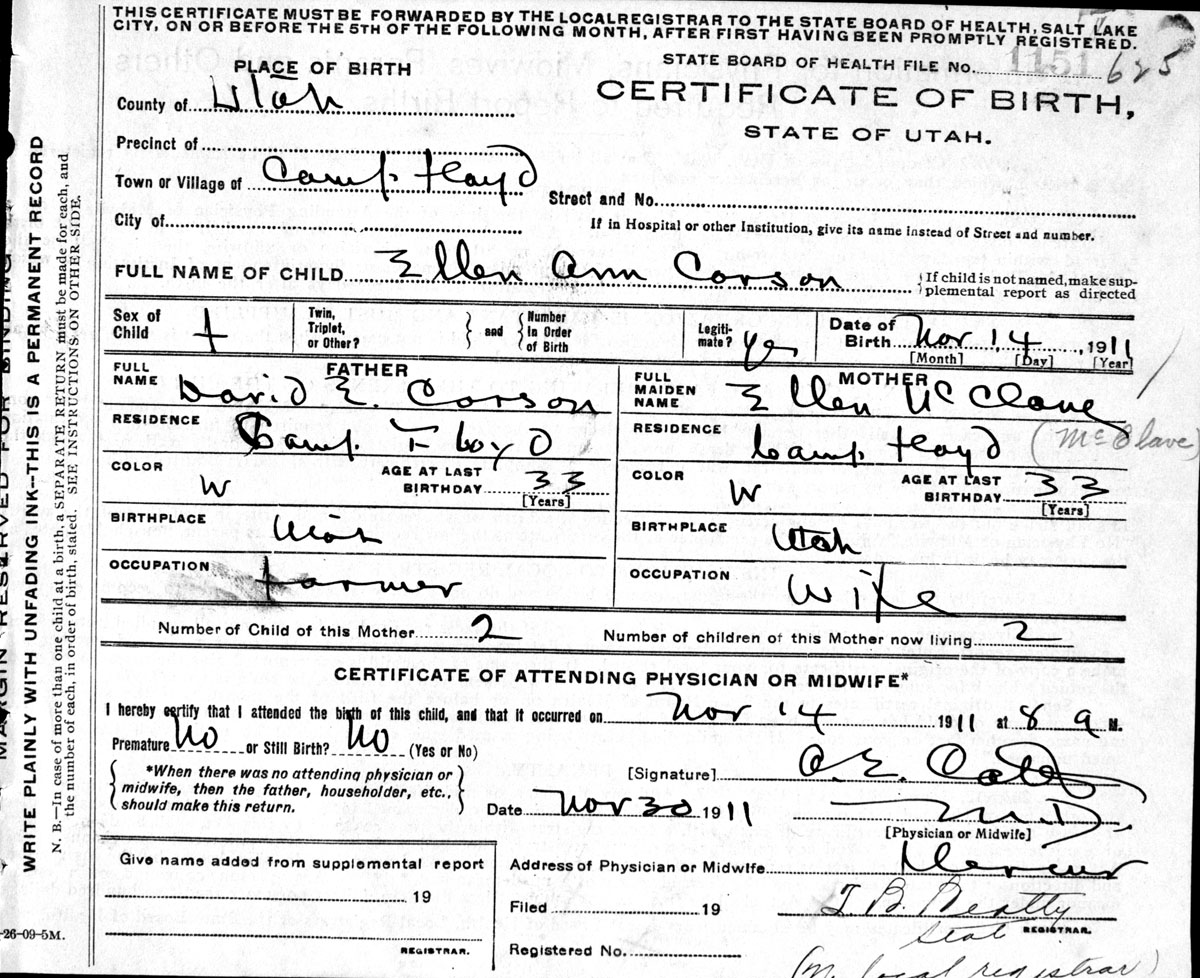 THIS CERTIFICATE MUST BE FORWARDED BY THE LOCAL REGISTRAR TO THE STATE BOARD OF HEALTH, SALT LAKE
CITY, ON OR BEFORE THE 5TH OF THE FOLLOWING MONTH, AFTER FIRST HAVING BEEN PROMPTLY REGISTERED.
STATE BOARD OF HEALTH FILE No. 1151 625
PLACE OF BIRTH
CERTIFICATE OF BIRTH,
County of Utah
STATE OF UTAH.
Precinct of
Town or Village of Camp Floyd
Street and No.
City of
If in Hospital or other Institution, give its name instead of Street and number.
FULL NAME OF CHILD Ellen Ann Corson
{If child is not named, make sup-
plemental report as directed
Sex of Child f
Twin, Triplet, or Other?
and
Number in Order of Birth
Legiti-mate? Yes
Date of Birth Nov 14, 1911
[Month] [Day] [Year]
FATHER
FULL NAME David E. Corson
RESIDENCE Camp Floyd
COLOR W
AGE AT LAST BIRTHDAY 33
[Years]
BIRTHPLACE Utah
OCCUPATION Farmer
MOTHER
FULL MAIDEN NAME Ellen McClave
RESIDENCE Camp Floyd
(McClave)
COLOR W
AGE AT LAST BIRTHDAY 33
[Years]
BIRTHPLACE Utah
OCCUPATION Wife
Number of Child of this Mother 2
Number of children of this Mother now living 2
CERTIFICATE OF ATTENDING PHYSICIAN OR MIDWIFE*
I hereby certify that I attended the birth of this child, and that it occurred on Nov 14 1911 at 8 a M.
Premature No or Still Birth? No (Yes or No)
*When there was no attending physician or
midwife, then the father, householder, etc.,
should make this return.
[Signature]
Date Nov 30 1911
M.D.
[Physician or Midwife]
Give name added from supplemental report
19
REGISTRAR.
Address of Physician or Midwife Mercur
Filed 19
T B. Beatty
Stat REGISTRAR.
Registered No.
(no local registrar)
MARGIN RESERVED FOR BINDING
WRITE PLAINLY WITH UNFADING INK--THIS IS A PERMANENT RECORD
N. B.—In case of more than one child at a birth, a SEPARATE RETURN must be made for each, and
the number of each, in order of birth, stated. SEE INSTRUCTIONS ON OTHER SIDE.
-26-09-5M.